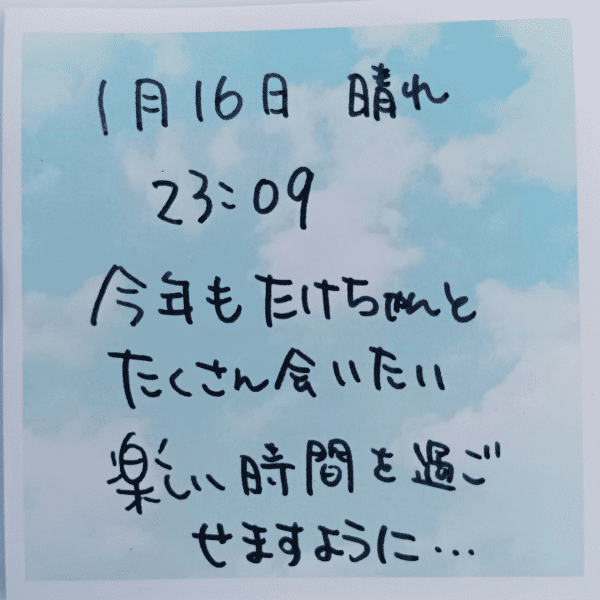 1月16日 晴れ
23:09
今年もたけちゃんと
たくさん会いたい
楽しい時間を過ご
せますように…